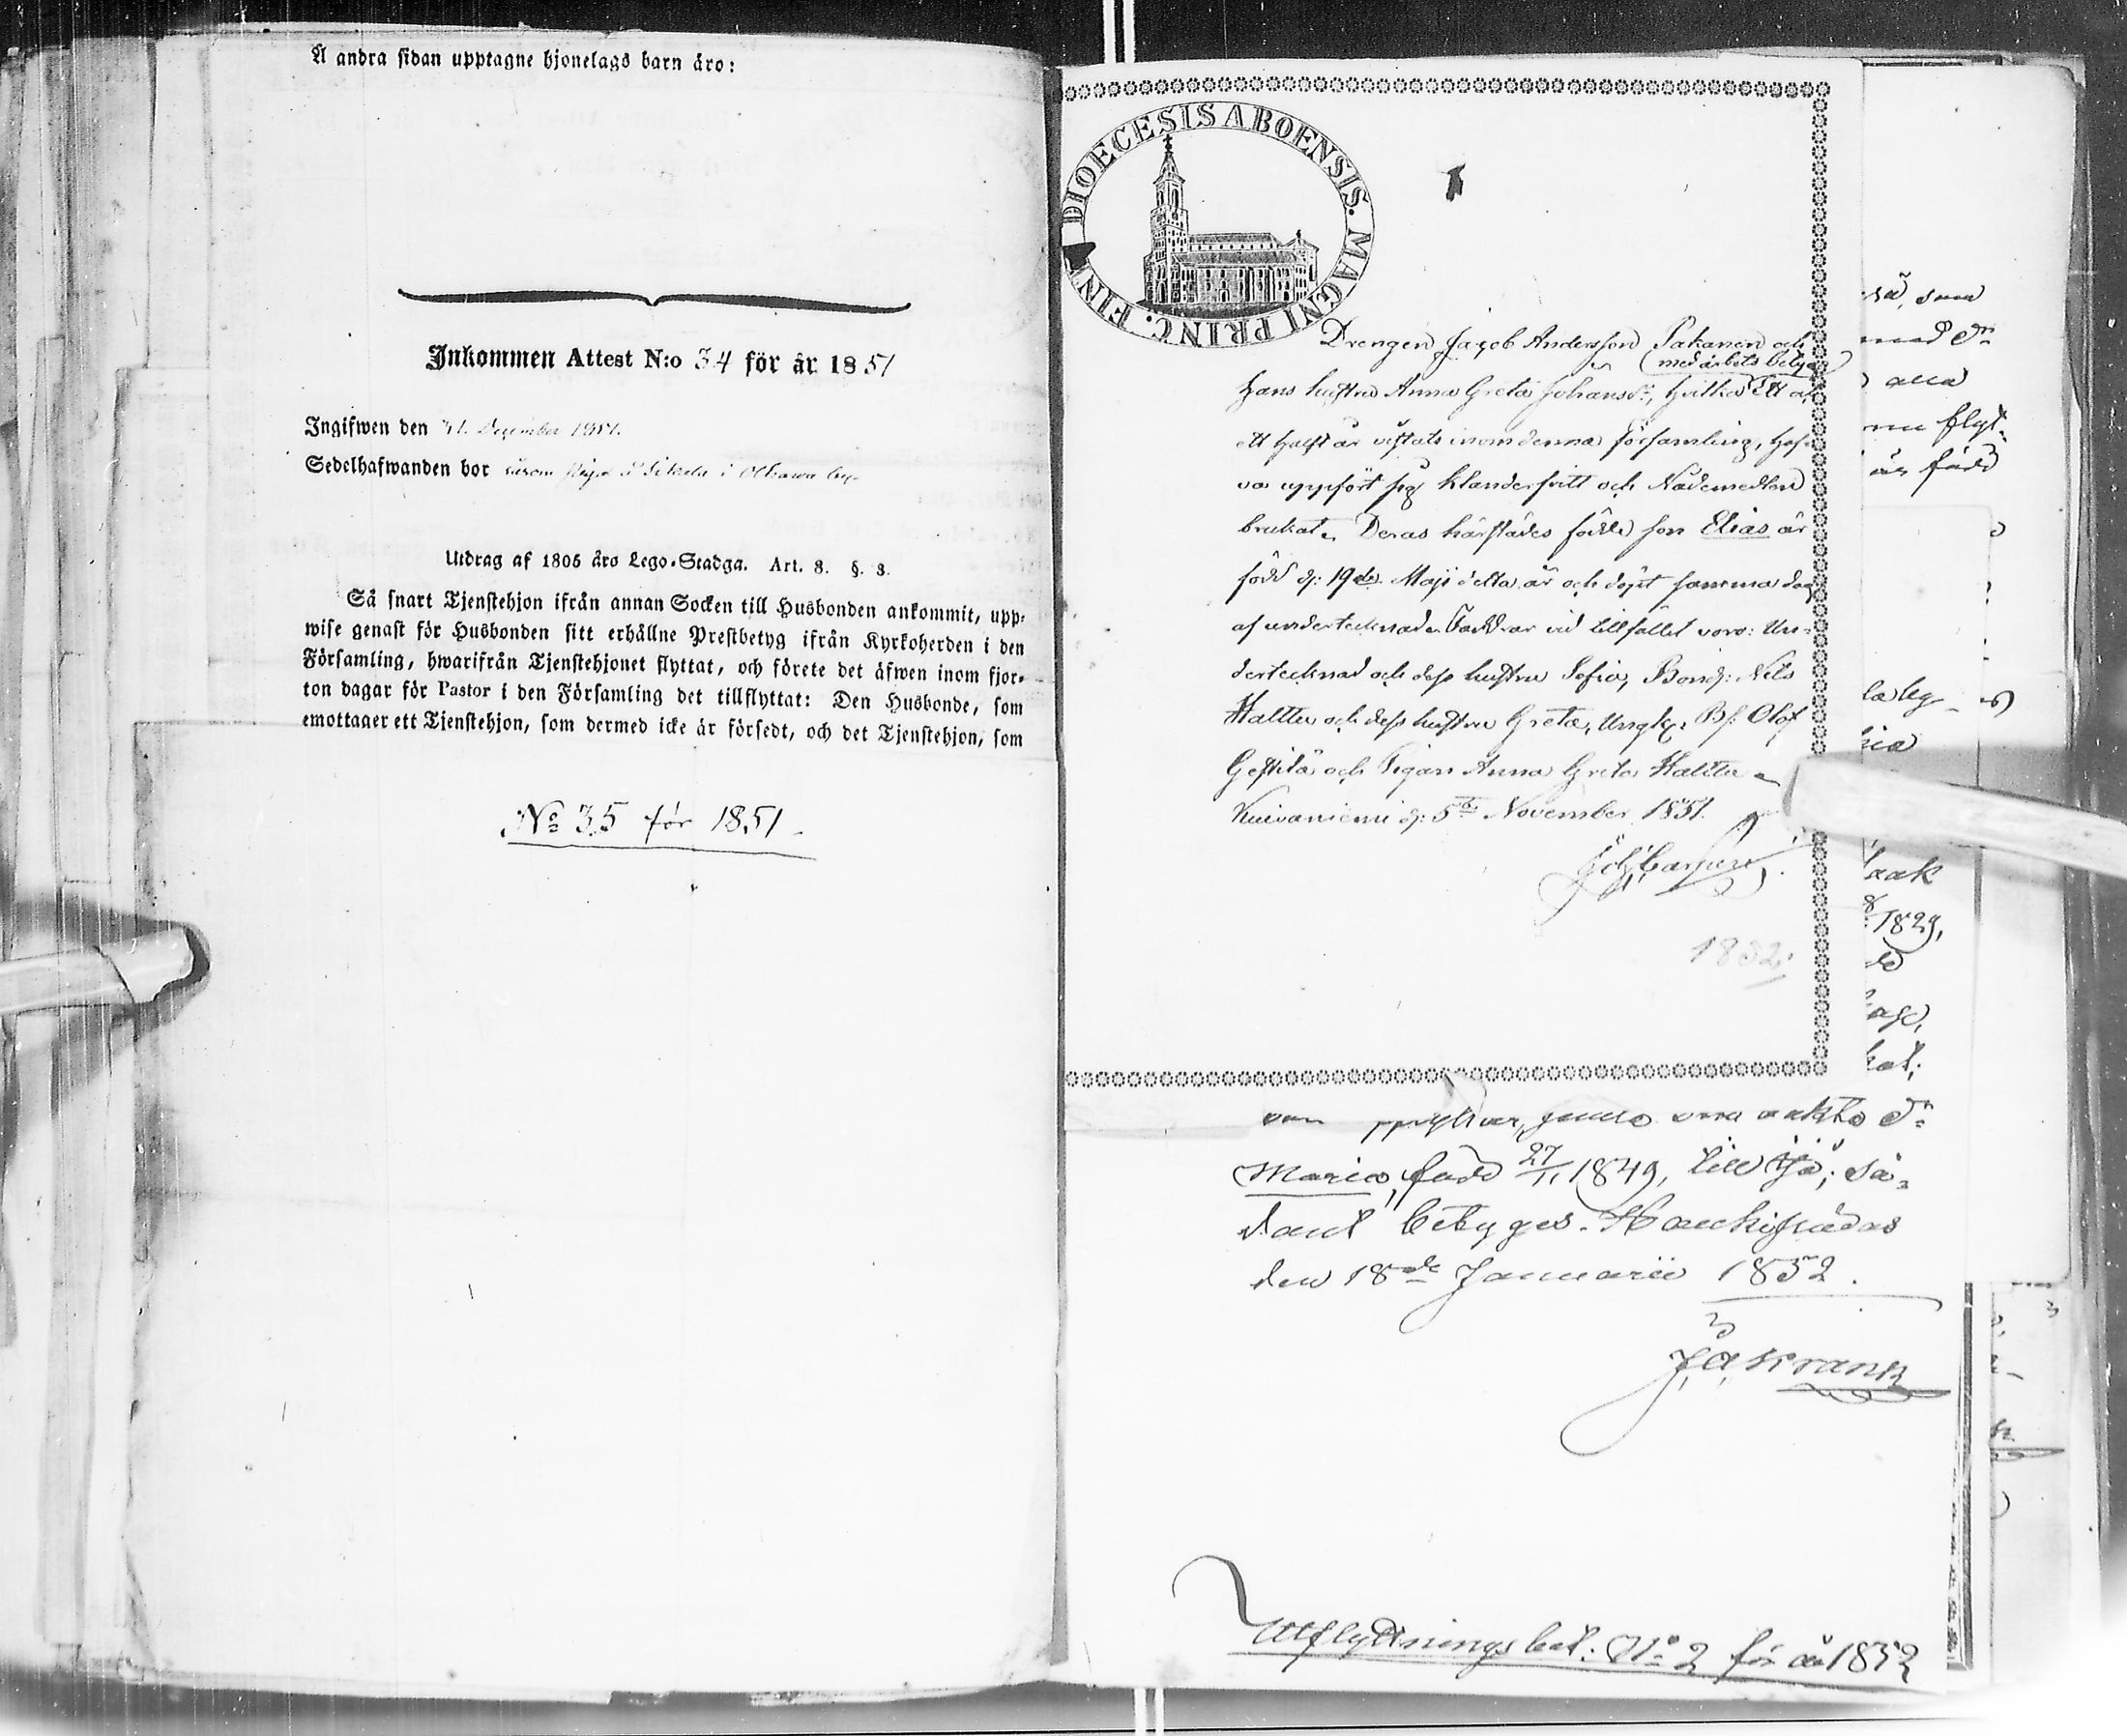 Å andra sidan upptagne hjonelags barn äro:
Inkommen Attest N:o 34 för år 1851
Ingifwen den 31 December 1851.
Sedelhafwanden bor såsom i by.
Utdrag af 1805 års Lego-Stadga. Art. 8. §. 3.
Så snart Tjenstehjon ifrån annan Socken till Husbonden ankommit, upp-
wise genast för Husbonden sitt erhållne Prestbetyg ifrån Kyrkoherden i den
Församling, hwarifrån Tjenstehjonet flyttat, och förete det äfwen inom fjor-
ton dagar för Pastor i den Församling det tillflyttat: Den Husbonde, som
emottager ett Tjenstehjon, som dermed icke är försedt, och det Tjenstehjon, som
No 35 för 1851.
DIOECESIS ABOENSIS. MAGNI PRINC. FINL
1
Drengen Jacob Andersson Pakanen och
med arbets betyg
hans hustru Anna Greta Johansd:, hvilka Ett och
ett halft år vistats inom denna församling, haf-
va uppfört sig klanderfritt och Nådemedlen
brukat. Deras härstädes födde son Elias är
född d: 19de Maji detta år och döpt samma dag
af undertecknad. Faddrar vid tillfället voro: Un-
dertecknad och dess hustru Sofia, Bond: Nils
Halttu och dess hustru Greta, Ungk: Bs: Olof
och Pigan Anna Greta Halttu
Kuivaniemi d: 5te November 1851.
1852.
Maria, född 27/1 1849, till Ijo; så-
dant betygas. Haukipudas
den 18de Januarii 1852.
J A Krank
Utflyttnings bet: No 2 för år 1852
så, som
med
alla
flyt-
är född
1829,